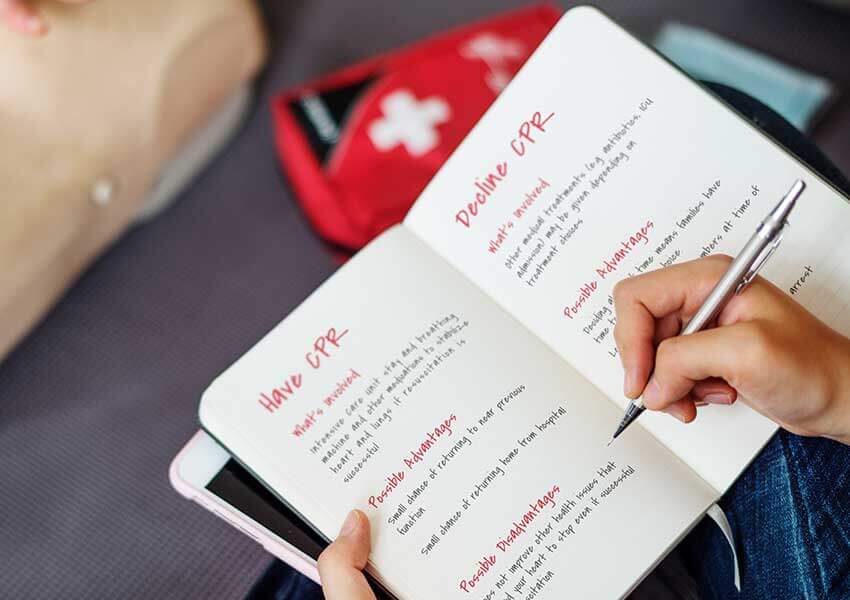 Have CPR
What's involved
Intensive care unit stay and breathing
machine and other medications to stabilize
heart and lungs if resuscitation is
successful
Possible Advantages
Small chance of returning to near previous
function
Small chance of returning home from hospital
Possible Disadvantages
not improve other health issues that
your heart to stop even if successful
Decline CPR
What's involved
Other medical treatments (e.g. antibiotics, ICU
admission) may be given depending on
treatment choices
Possible Advantages
Deciding time means families have
time
at time of
arrest